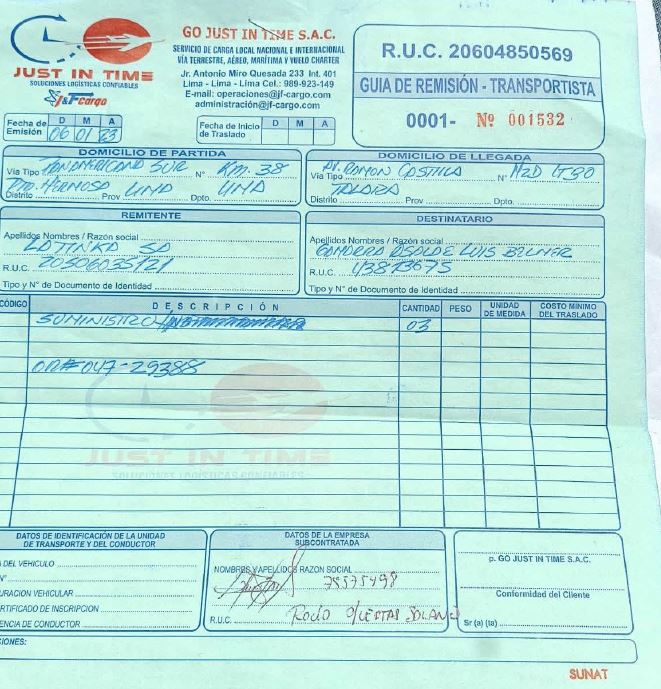 JUST IN TIME
SOLUCIONES LOGÍSTICAS CONFIABLES
J&F Cargo
GO JUST IN TIME S.A.C.
SERVICIO DE CARGA LOCAL NACIONAL E INTERNACIONAL
VÍA TERRESTRE, AÉREO, MARÍTIMA Y VUELO CHARTER
Jr. Antonio Miro Quesada 233 Int. 401
Lima - Lima - Lima Cel.: 989-923-149
E-mail: operaciones@jf-cargo.com
administración@jf-cargo.com
R.U.C. 20604850569
GUIA DE REMISIÓN - TRANSPORTISTA
0001- Nº 001532
Fecha de Emisión D M A
06 01 23
Fecha de Inicio de Traslado D M A
DOMICILIO DE PARTIDA
Vía Tipo PANAMERICANA SUR N° KM. 38
PTO. HERMOSA LIMA LIMA
Distrito Prov Dpto.
DOMICILIO DE LLEGADA
Vía Tipo AV. RAMON CASTILLA N° MZD LT90
TALARA
Distrito Prov. Dpto.
REMITENTE
Apellidos Nombres / Razón social
LATINKA SA
R.U.C. 20506035121
Tipo y N° de Documento de Identidad
DESTINATARIO
Apellidos Nombres / Razón social
GAMARRA LUIS
R.U.C. 43873675
Tipo y N° de Documento de Identidad
CÓDIGO DESCRIPCIÓN CANTIDAD PESO UNIDAD DE MEDIDA COSTO MÍNIMO DEL TRASLADO
SUMINISTRO 03
OR# 047-29388
JUST IN TIME
SOLUCIONES LOGÍSTICAS CONFIABLES
DATOS DE IDENTIFICACIÓN DE LA UNIDAD
DE TRANSPORTE Y DEL CONDUCTOR
A DEL VEHÍCULO
N°
URACION VEHICULAR
ERTIFICADO DE INSCRIPCION
ENCIA DE CONDUCTOR
DATOS DE LA EMPRESA
SUBCONTRATADA
NOMBRES Y APELLIDOS RAZON SOCIAL
75575498
R.U.C. SOLANO
p. GO JUST IN TIME S.A.C.
Conformidad del Cliente
Sr (a) (ta)
IONES:
SUNAT